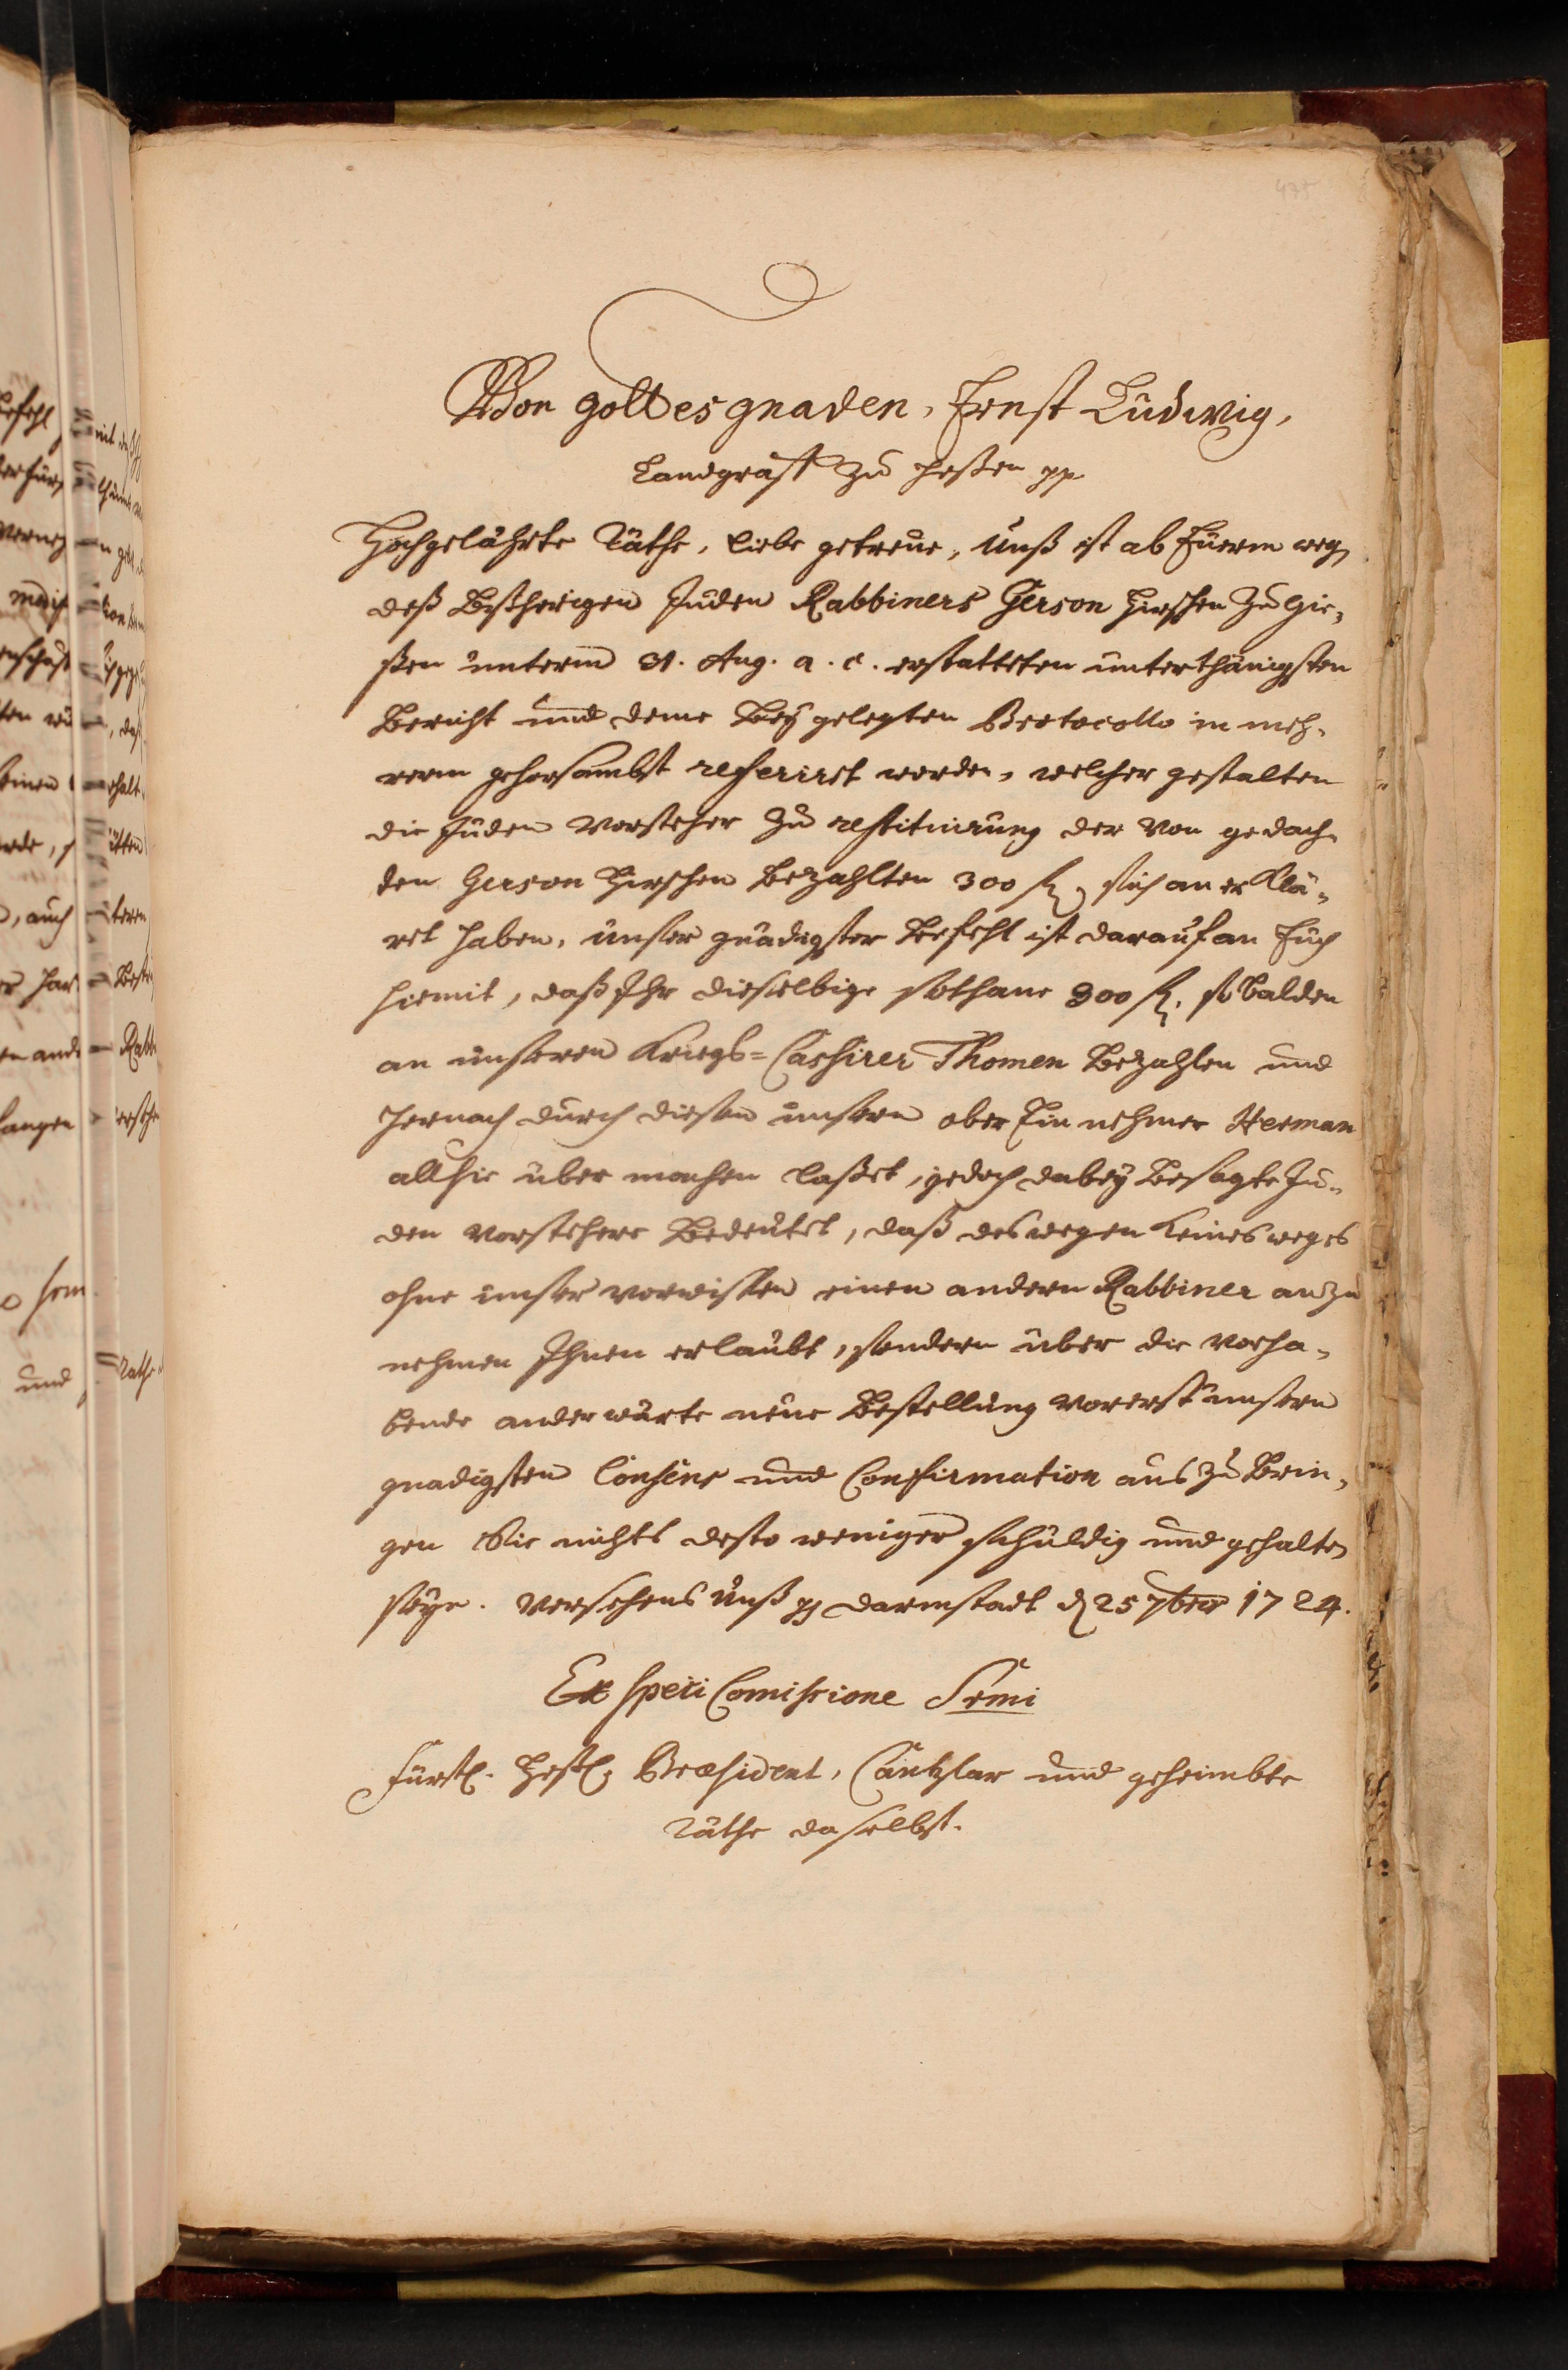 435
Von Gottes gnaden, Ernst Ludwig,
Landgraff zu Heßen pp.
Hochgelährte Räthe, liebe getreue, Unß ist ab Euerm weg
deß bißherigen Juden Rabbiners Gerson Hirschen zu Gie-
ßen unterm 31. Aug. a. c. erstatteten unterthänigsten
Bericht und deme beygelegten Protocollo in meh-
rerm gehorsambst referiret worden, welcher gestalten
die Juden Vorsteher zu restituirung der von gedach-
ten Gerson Hirschen bezahlten 300 fl, sich an erklä-
ret haben, unser gnädigster Befehl ist darauf an Euch
hiemit, daß Ihr dieselbige sothane 300 fl. so balden
an unseren Kriegs-Cassirer Thomen bezahlen und
hernach durch diesen unsern ober Einnehmer Herman
allhie über machen laßet, jedoch dabey besagte Ju-
den Vorstehere bedeutet, daß deswegen keines weges
ohne unser vorwißen einen andern Rabbiner anzu
nehmen Ihnen erlaubt, sondern über die vorha-
bende anderwärte neue Bestellung vorerst unsern
gnädigsten Consens und Confirmation aus zu brin-
gen Sie nichts desto weniger schuldig und gehalten
seye. Versehens unß pp Darmstadt d 25 7bris 1724.
Ex speci Comissione Srmi
Fürstl. Heßl. Præsident, Cantzlar und geheimbte
Räthe daselbst.